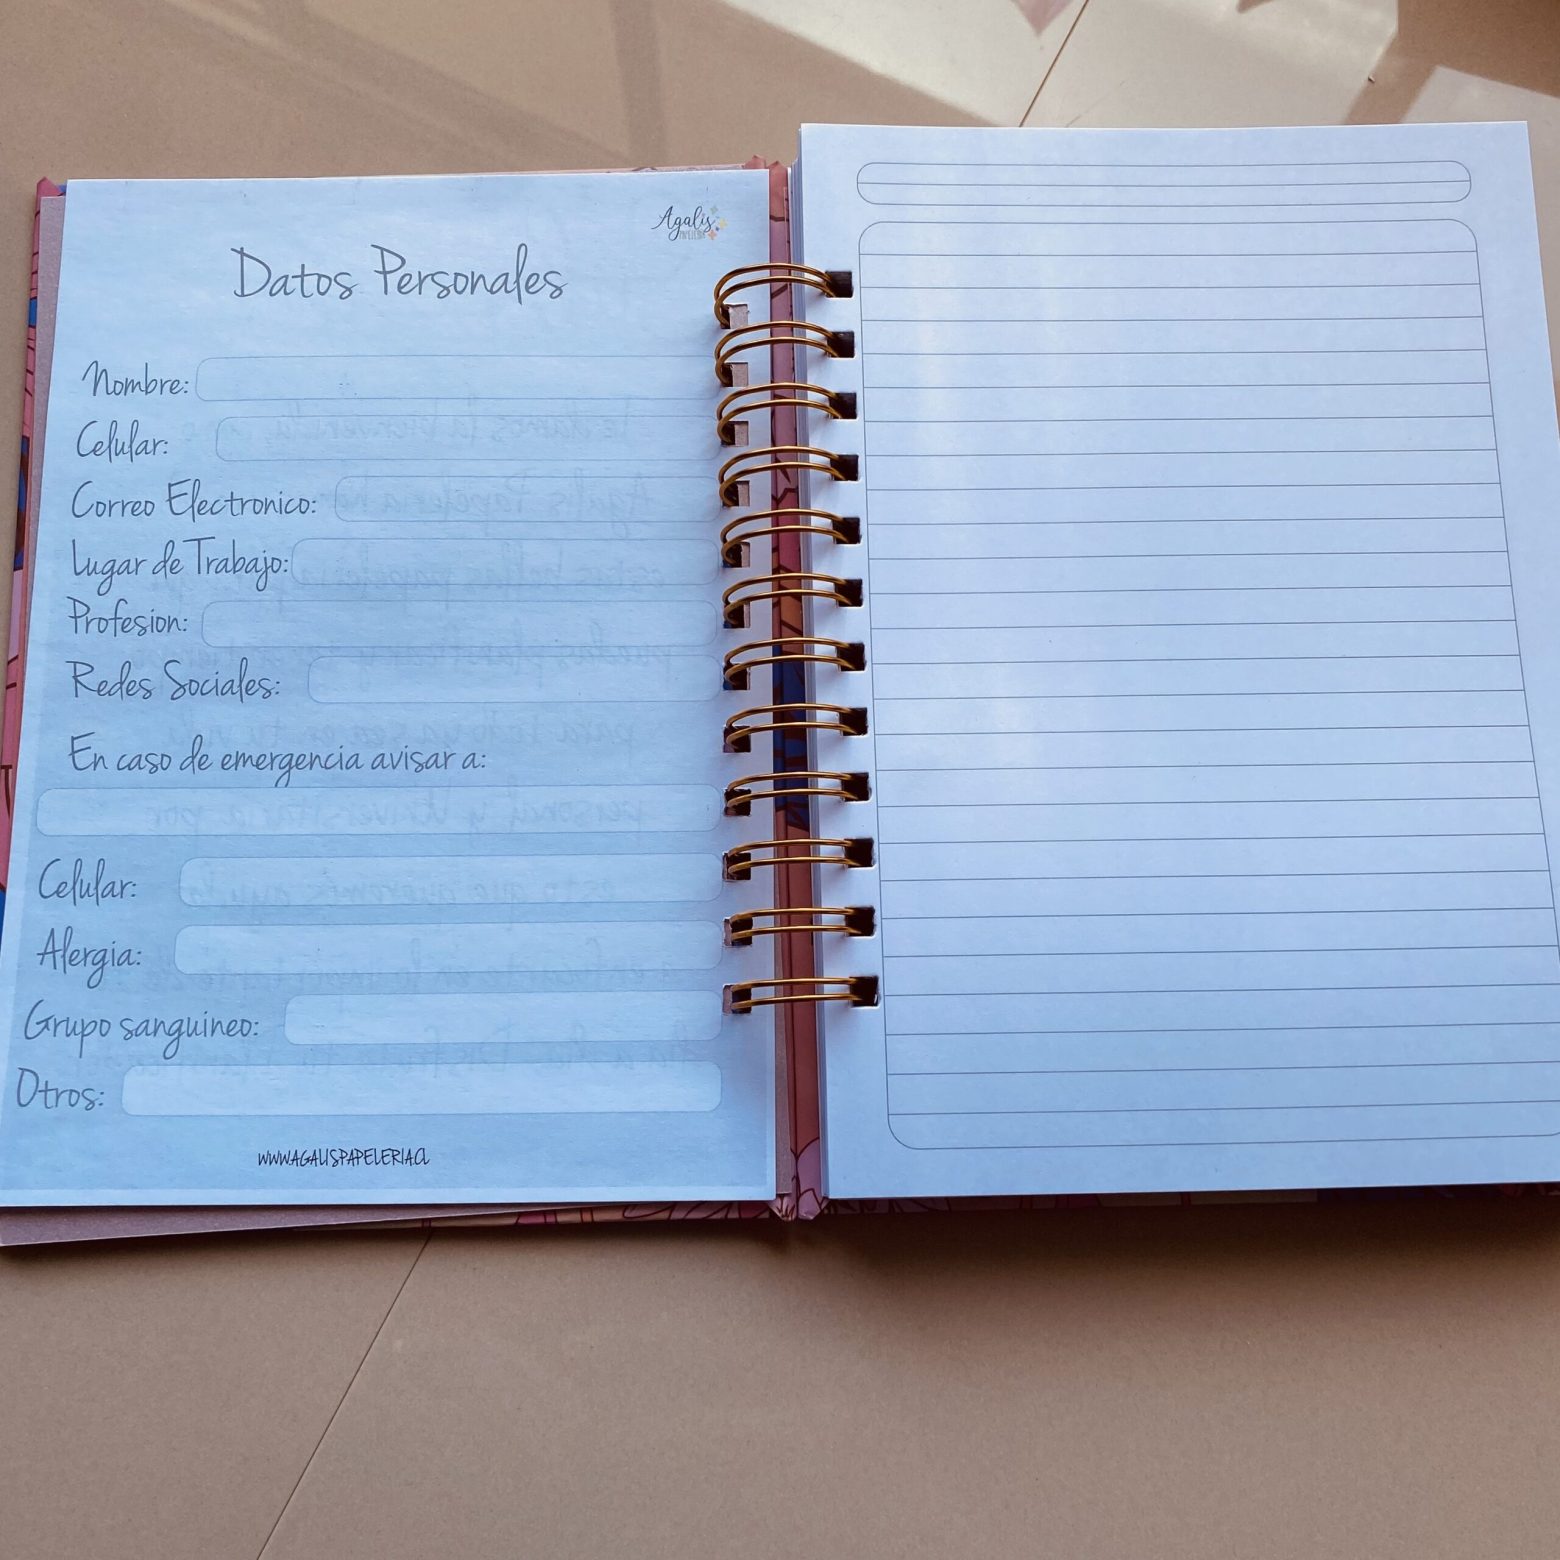 Agalis
PAPELERIA
Datos Personales
Nombre:
Celular:
Correo Electronico:
Lugar de Trabajo:
Profesion:
Redes Sociales:
En caso de emergencia avisar a:
Celular:
Alergia:
Grupo sanguineo:
Otros:
WWW.AGALISPAPELERIA.CL